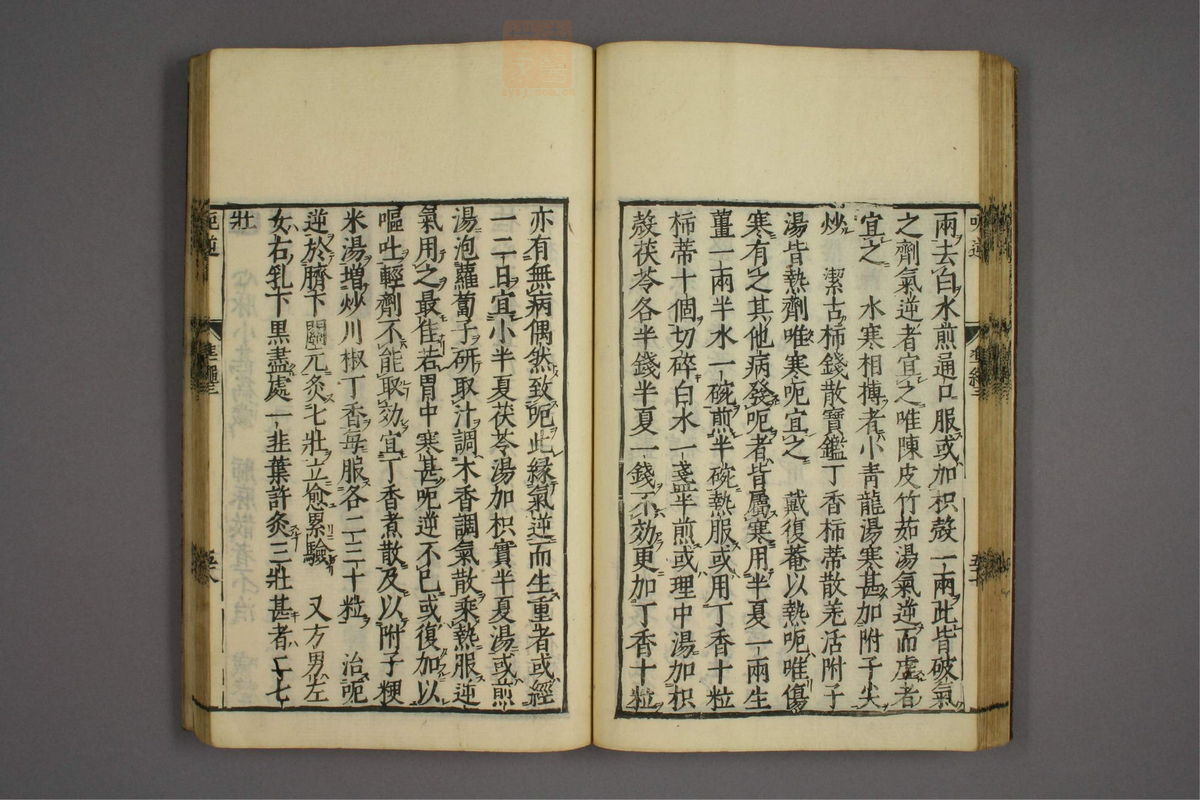 兩去白水煎通口服或加枳殼一兩此皆破氣
之劑氣逆者宜之唯陳皮竹茹湯氣逆而虛者
宜之 水寒相搏者小青龍湯寒甚加附子尖
炒 潔古柿錢散寶鑑丁香柿蒂散羗活附子
湯皆熱劑唯寒呃宜之 戴復菴以熱呃唯傷
寒有之其他病發呃者皆屬寒用半夏一兩生
薑一兩半水一碗煎半碗熱服或用丁香十粒
柿蒂十個切碎白水一盞半煎或理中湯加枳
殼茯苓各半錢半夏一錢不効更加丁香十粒
亦有無病偶然致呃此緣氣逆而生重者或經
一二日宜小半夏茯苓湯加枳實半夏湯或煎
湯泡蘿蔔子研取汁調木香調氣散乘熱服逆
氣用之最佳若胃中寒甚呃逆不已或復加以
嘔吐輕劑不能取効宜丁香煮散及以附子粳
米湯增炒川椒丁香每服各二三十粒 治呃
逆於臍下關元灸七壯立愈累驗 又方男左
女右乳下黒盡處一韭葉許灸三壯甚者二七
壯
呃逆